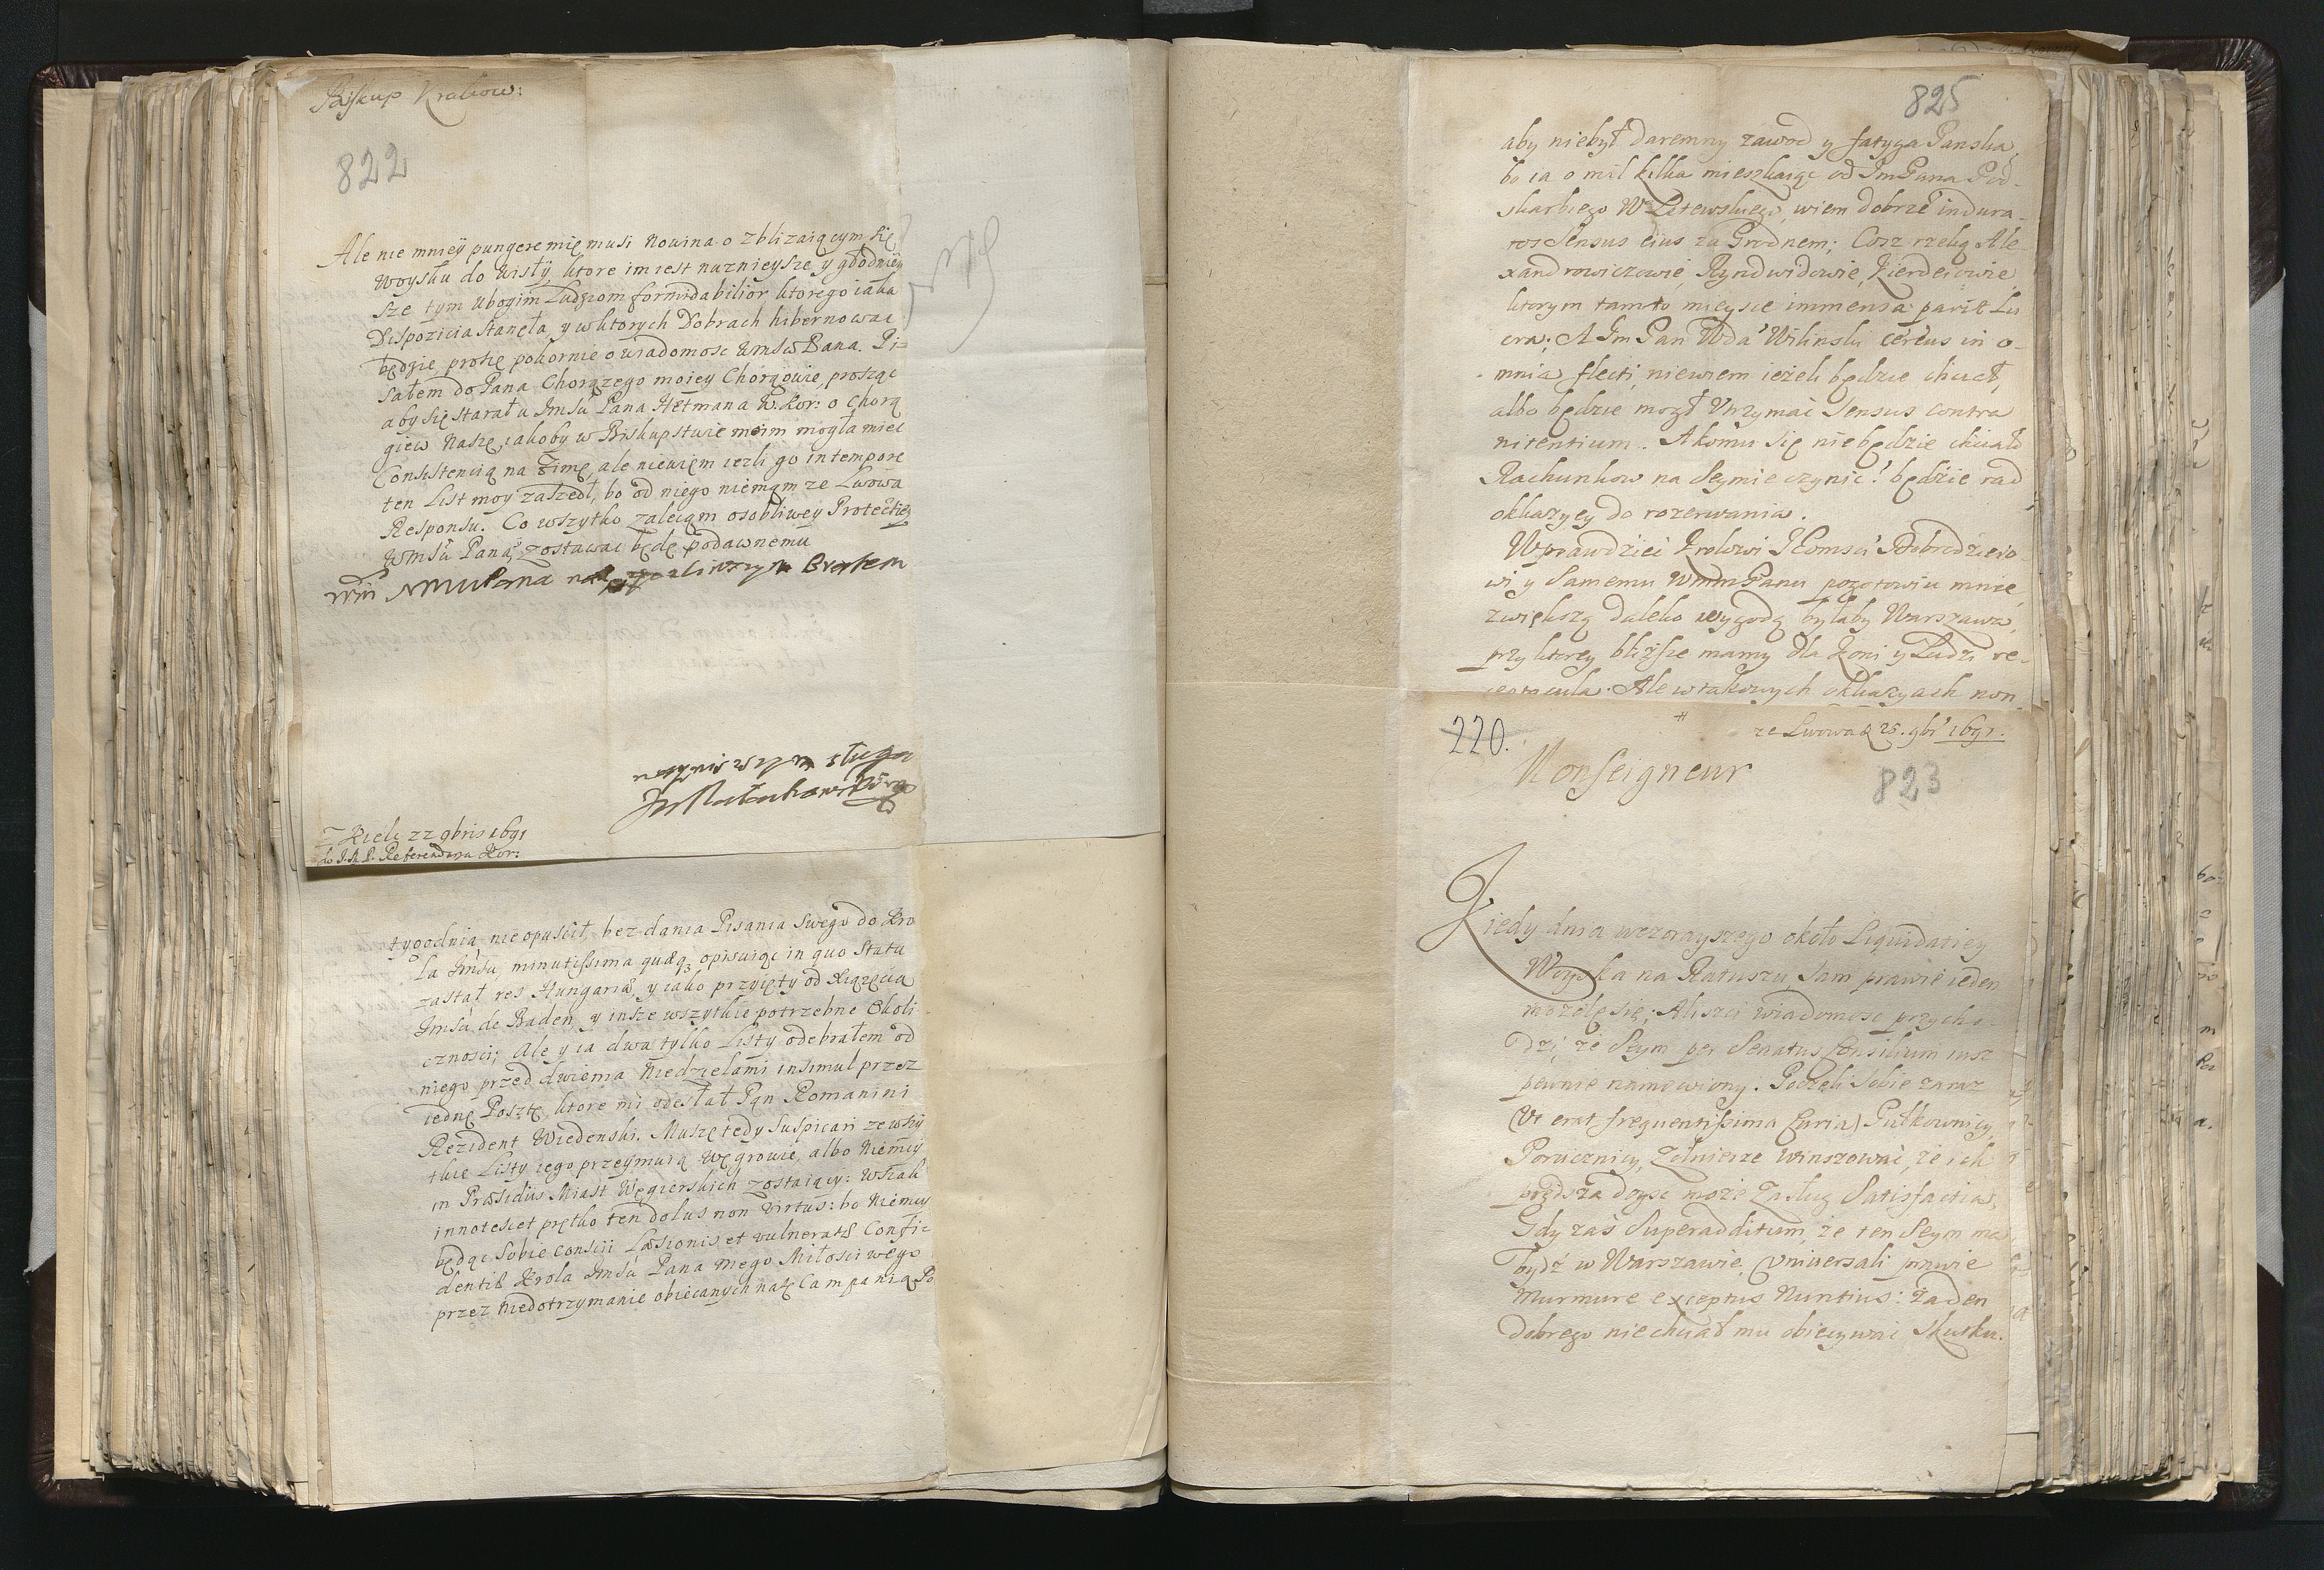 Biskup Krakow:
822
Ale nie mnieÿ pungere mię musi Nowina o zblizaiącym się
Woysku do Wisłÿ, ktore im iest nuznieysze y głodnieÿ
sze tym ubogim Ludziom formidabilior, ktorego iaka
Dispozicia stanęła, y w ktorych Dobrach hibernowac
będzie, proszę pokornie o wiadomosc WmśćPana. Pi=
sałem do Pana Chorązego moiey Chorągwie, prosząc
aby się starał u Jmśći Pana Hetmana W. Kor: o chorą
giew Naszę, iakoby w Biskupstwie moim mogła miec
Consistencią na Zimę, ale niewięm iezli go in tempore
ten List moy zaszedł, bo od niego niemąm ze Lwowa
Responsu. Co wszytko zalecąm osobliwey Protectiey
Wmśći Pana, zostawac będę podawnemu
Bratem
sługa
Z Kielc 22 9bris 1691
do J. M. P. Referendarza Kor:
tygodnia nie opuscił, bez dania Pisania Swego do Kro
la Jmśći, minutissima quæq3 opisuiąc in quo Statu
zastał res Hungariæ, y iako przyięty od Xiązęcia
Jmśći de Baden, y insze wszytkie potrzebne Okoli
cznosci; Ale y ia dwa tylko Listy odebrałem od
niego przed dwiema Niedzielami insimul przez
iednę Posztę, ktore mi odesłał Pąn Romanini
Rezident Wiedenski. Muszę tedy suspicari ze wszÿ
tkie Listy iego przeymuią Węgrowie, albo Niemcÿ
in Præsidiis Miast Węgierskich zostaiący: wszak
innotescet prętko ten dolus non virtus: bo Niemcy
będąc sobie conscii Læsionis et vulneratæ Confi=
dentiæ Krola Jmśći Pana mego Miłosciwego
przez Niedotrzymanie obiecanych na tę Campanią Po
825
aby niebył daremny zawod y fatyga Panska,
bo ia o mil kilka mieszkaiąc od Jm Pana Pod=
skarbiego W. Litewskiego, wiem dobrze indura=
tos Sensus eius za Grodnem; Cosz rzekę Ale=
xandrowiczowie, Kierdeiowie,
ktorym tamto mieysce immensa parit Lu
cra; A Jm Pan Wda Wilinski cereus in o=
mnia flecti, niewiem ieżeli będzie chciał,
albo będzie mogł Utrzymać Sensus contra
nitentium. A komu się nie będzie chciało
Rachunkow na Seymie czynic! będzie rad
okkazyey do rozerwania.
Wprawdzieć Krolowi JEomści Dobrodzieio=
wi y Samemu WmmPanu pogotowiu mnie
zwiększą daleko wygodą byłaby Warszawa,
przy ktorey bliższe mamy dla Koni y Ludzi re=
ceptacula. Ale w takowych okkazyach non
220.
ze Lwowa D 25. 9br 1691.
Monseigneur
823
Kiedy dnia wczorayszego około Liquidatiey
Woyska na Ratuszu, Sam prawie ieden
mozolę się; Aliszci wiadomosc przycho=
dzi, ze Seym per Senatus Consilium iusz
pewnie namowiony. Poczęli sobie zaraz
(Ut erat frequentissima Curia) Pułkownicy,
Porucznicy, Zołnierze winszować, że ich
prędsza doysc może Zasług Satisfactia,
Gdy zaś Superadditum, że ten Seym ma
bydź w Warszawie, Universali prawie
Murmure exceptus Nuntius: żaden
dobrego niechciał mu obiecywać skutku.